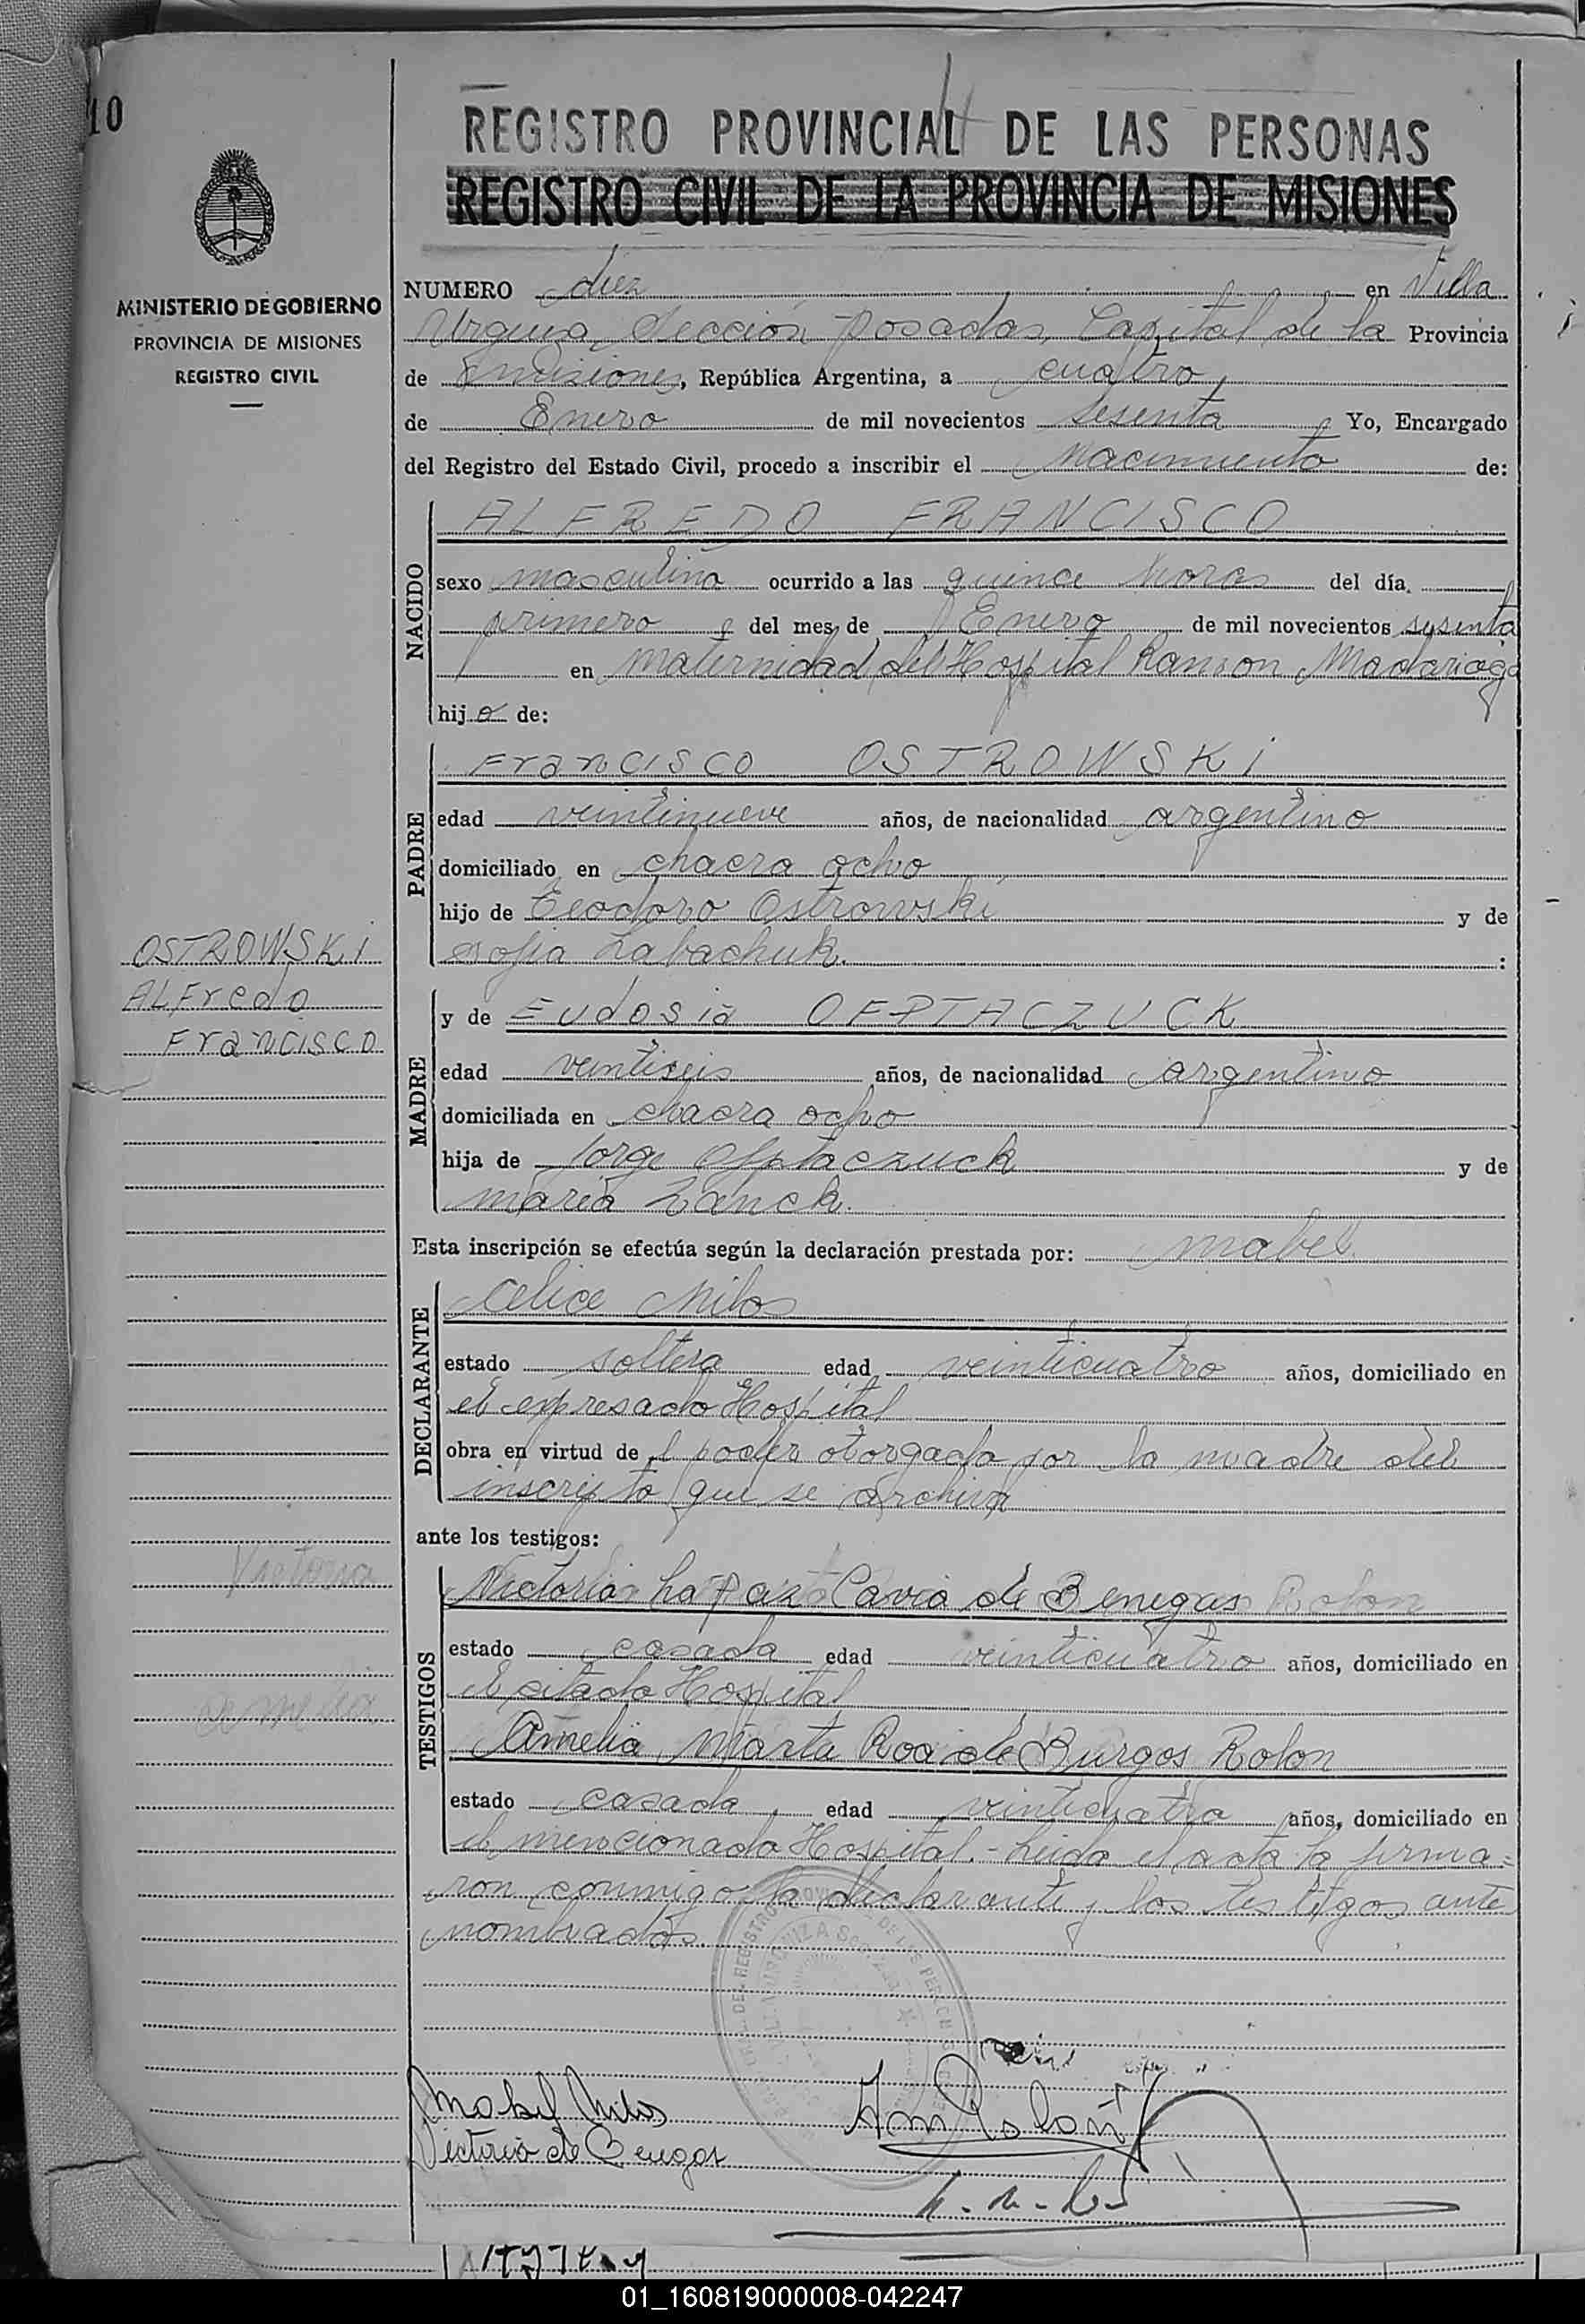 10
REGISTRO PROVINCIAL DE LAS PERSONAS
REGISTRO CIVIL DE LA PROVINCIA DE MISIONES
MINISTERIO DE GOBIERNO
PROVINCIA DE MISIONES
REGISTRO CIVIL
NUMERO diez en Villa
Urquiza, Sección Posadas, Capital de la Provincia
de Misiones, República Argentina, a cuatro,
de Enero de mil novecientos sesenta Yo, Encargado
del Registro del Estado Civil, procedo a inscribir el Nacimiento de:
NACIDO
ALFREDO FRANCISCO
sexo masculino ocurrido a las quince horas del día
primero del mes de Enero de mil novecientos sesenta
en Maternidad del Hospital Ramon Madariaga
hijo de:
PADRE
Francisco OSTROWSKI
edad veintinueve años, de nacionalidad argentino
domiciliado en chacra ocho
hijo de Teodoro Ostrowski y de
Sofia Labachuk.
OSTROWSKI
ALFredo
Francisco
MADRE
y de Eudosia OFPTACZUCK
edad veintiseis años, de nacionalidad argentino
domiciliada en chacra ocho
hija de Jorge Ofptaczuck y de
Maria Zanck.
Esta inscripción se efectúa según la declaración prestada por: Mabel
DECLARANTE
Celice Milos
estado soltera edad veinticuatro años, domiciliado en
el expresado Hospital
obra en virtud del poder otorgado por la madre del
inscripto que se archiva
ante los testigos:
Victoria
TESTIGOS
Victoria La Paz Cavia de Benegas Rolon
estado casada edad veinticuatro años, domiciliado en
el citado Hospital
Amelia
Amelia Marta Roa de Burgos Rolon
estado casada edad veinticuatro años, domiciliado en
el mencionado Hospital.- Leida el acta la firma=
ron conmigo la declarante y los testigos ante
nombrados.
Mabel Milos
Victoria de Benegas
01_160819000008-042247